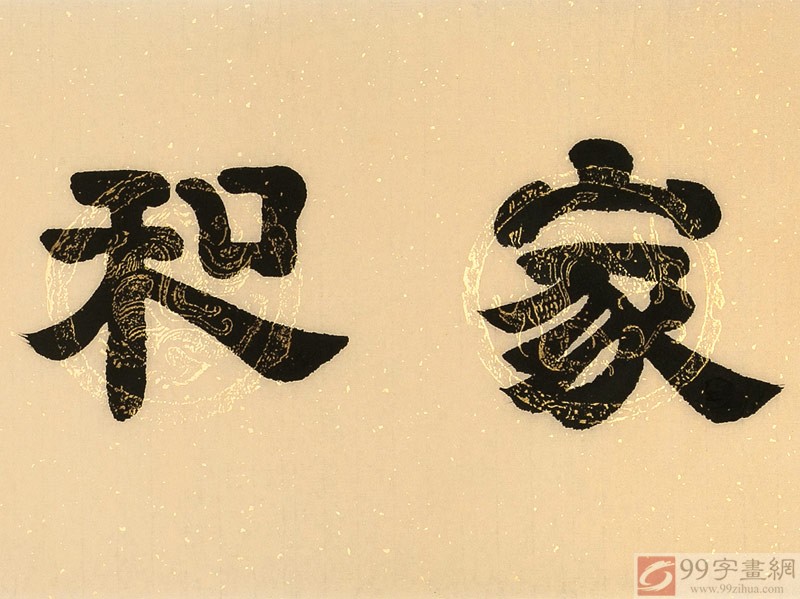 家和
99字畫網
www.99zihua.com